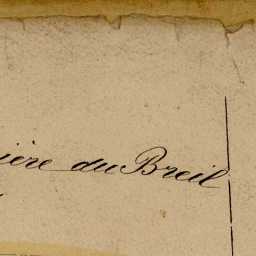 ière du Breil